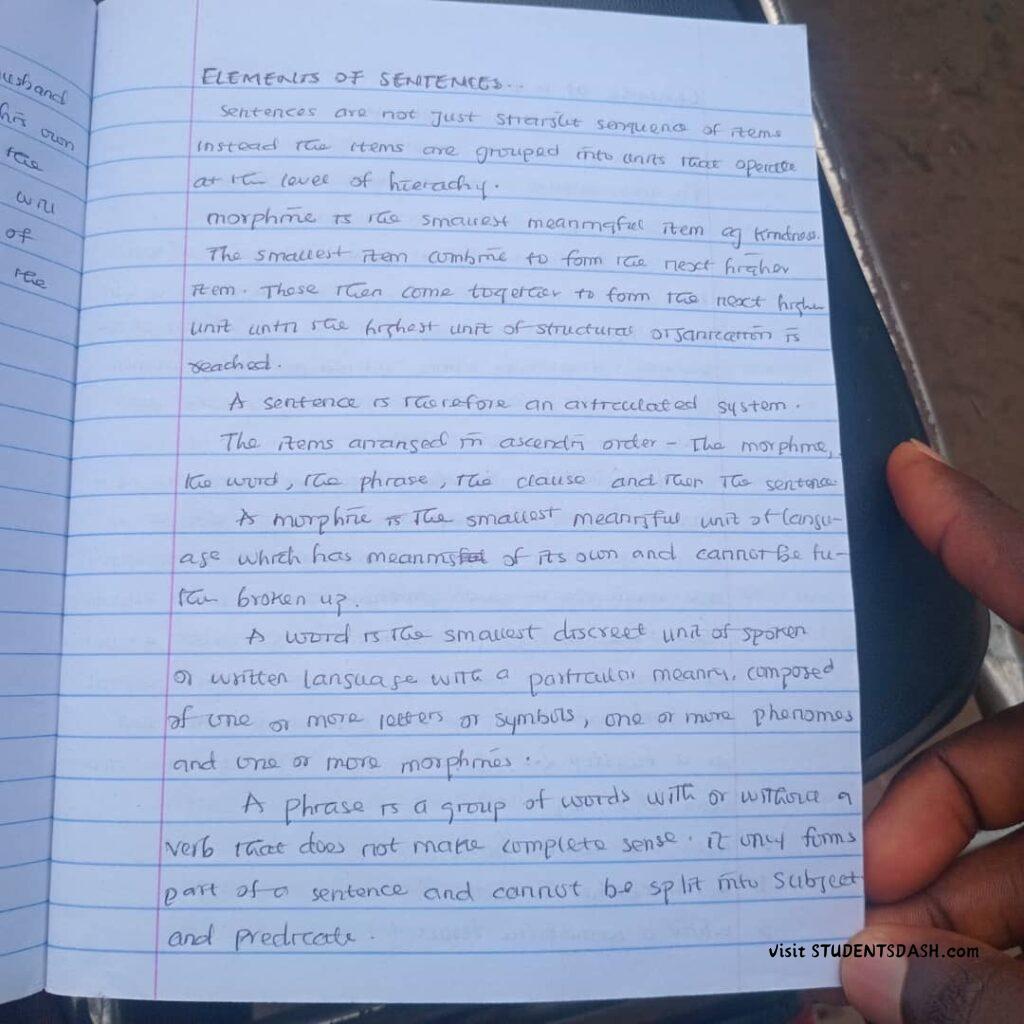 usband
his own
the
will
of
the
ELEMENTS OF SENTENCES...
Sentences are not just straight senquence of items
instead the items are grouped into units that operate
at the level of hierachy.
morphine is the smallest meaningful item eg kindness.
The smallest item combine to form the next higher
item. These then come together to form the next higher
unit until the highest unit of structural organization is
reached.
A sentence is therefore an articulated system.
The items arranged in ascendin order - The morphine,
the word, the phrase, the clause and then the sentence
A morphine is the smallest meaningful unit of langu-
age which has meaning of its own and cannot be fu-
ther broken up.
A word is the smallest discreet unit of spoken
or written language with a particular meaning, composed
of one or more letters or symbols, one or more phenomes
and one or more morphines.
A phrase is a group of words with or without a
verb that does not make complete sense. it only forms
part of a sentence and cannot be split into subject
and predicate.
visit STUDENTSDASH.com